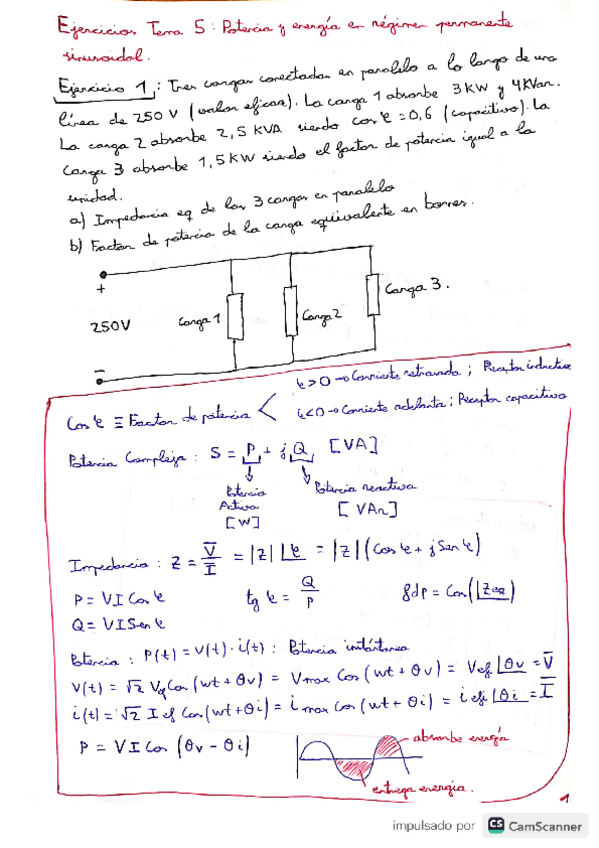 Ejercicios Tema 5: Potencia y energía en régimen permanente
sinusoidal.
Ejercicio 1: Tres cargas conectadas en paralelo a lo largo de una
línea de 250 V (valor eficaz). La carga 1 absorbe 3 KW y 4 KVar.
La carga 2 absorbe 2,5 KVA siendo cos φ = 0,6 (capacitivo). La
carga 3 absorbe 1,5 KW siendo el factor de potencia igual a la
unidad.
a) Impedancia eq de las 3 cargas en paralelo
b) Factor de potencia de la carga equivalente en bornes.
+
250V
−
Carga 1
Carga 2
Carga 3.
Cos φ ≡ Factor de potencia
φ>0 → Corriente retrasada; Receptor inductivo
φ<0 → Corriente adelanta; Receptor capacitivo
Potencia Compleja: S = P + jQ [VA]
Potencia Activa [W]
Potencia reactiva [VAr]
Impedancia: Z = V̄/Ī = |Z| ∠φ = |Z| (Cos φ + j Sen φ)
P = V I Cos φ
tg φ = Q/P
fdp = Cos(∠Zeq)
Q = V I Sen φ
Potencia: P(t) = v(t) · i(t): Potencia instántanea
v(t) = √2 Vef Cos (wt + θv) = Vmax Cos (wt + θv) = Vef ∠θv = V̄
i(t) = √2 I ef Cos (wt + θi) = i max Cos (wt + θi) = i ef ∠θi = Ī
P = V I Cos (θv - θi)
absorbe energía
entrega energía.
1
impulsado por CS CamScanner